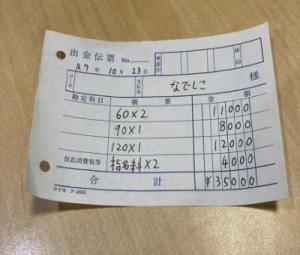 出金伝票 No.
R7年 10月 23日
コード 支払先 なでしこ 様
勘定科目 摘要 金額
60×2 11000
90×1 8000
120×1 12000
仮払消費税等 指名料×2 4000
合計 ¥35000
コクヨ テ-2002